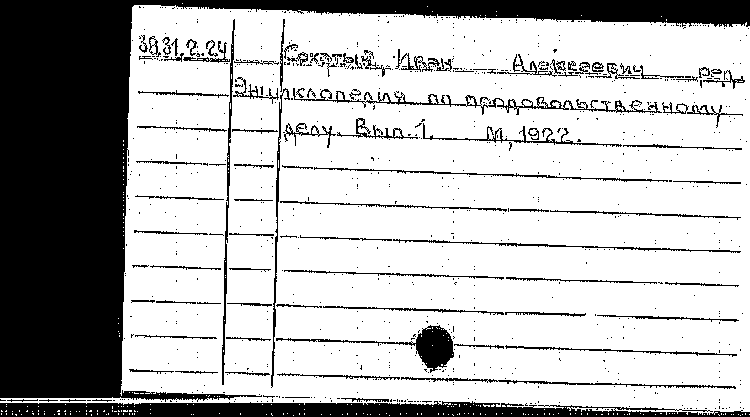 3931.2.24 Сокатый, Иван Алексеевич ред.
Энциклопедия по продовольственному
делу. Вып. 1. М, 1922.